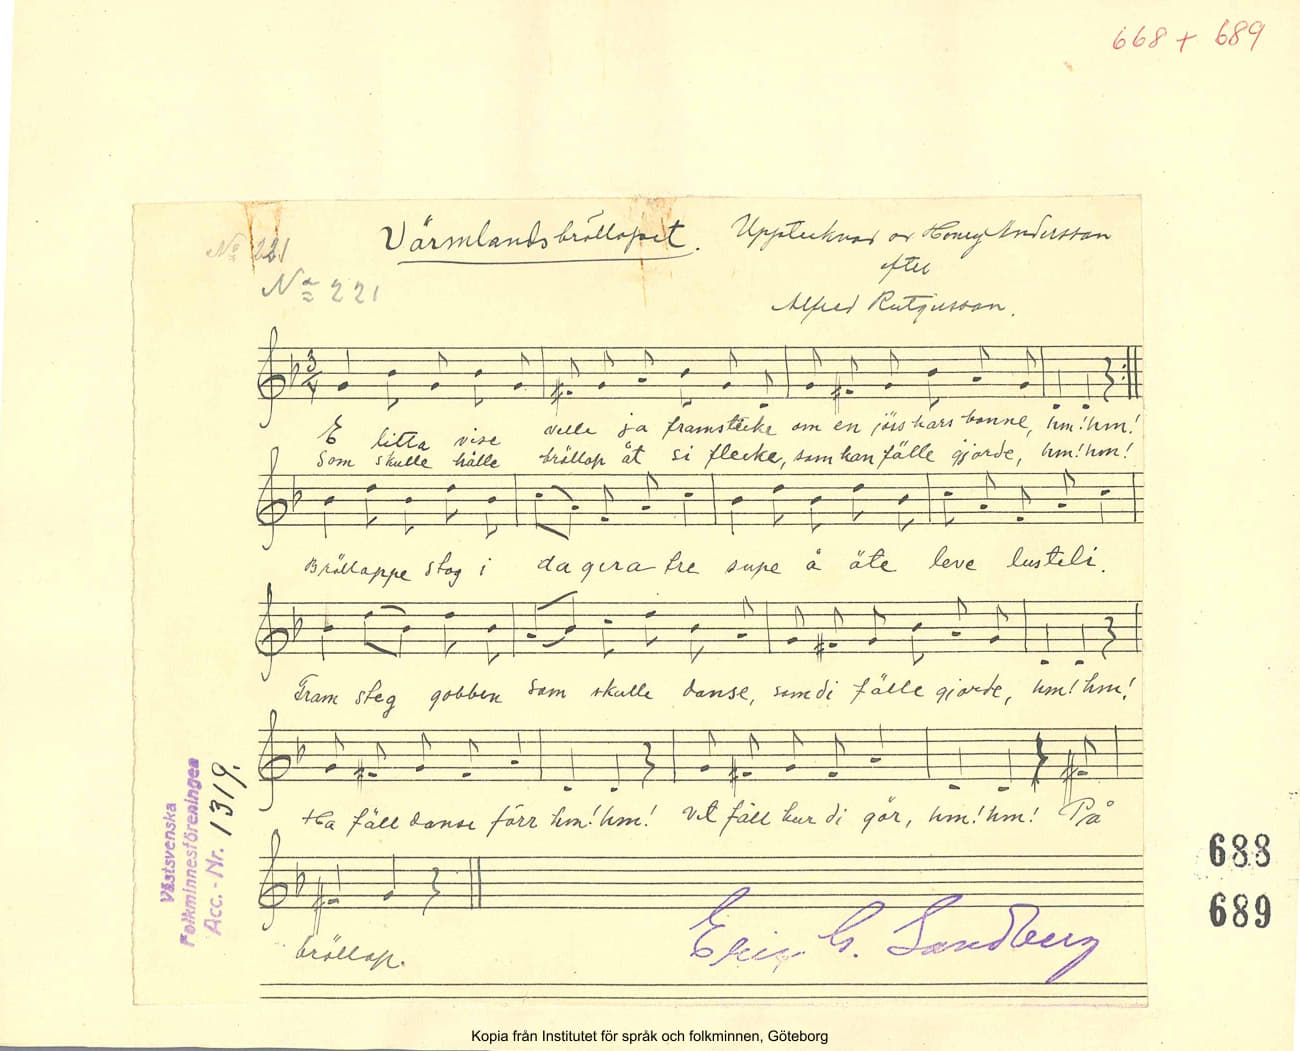 668 + 689
No 221
No 221
Värmlandsbröllopet. Upptecknad av Henry Andersson
efter
Alfred Rutgersson.
E litta vise velle ja framstecke om en jöishars bonne, hm! hm!
Som skulle hålle bröllop åt si flecke, som han fälle gjorde, hm! hm!
Bröllappe stog i dagera tre supe å äte leve lusteli.
Fram steg gobben som skulle danse, som di fälle gjorde, hm! hm!
Ha fäll danse förr hm! hm! Vet fäll hur di gör, hm! hm! På
bröllop.
Erix G. Sandberg
Västsvenska
Folkminnesföreningen
Acc.-Nr. 1319.
688
689
Kopia från Institutet för språk och folkminnen, Göteborg